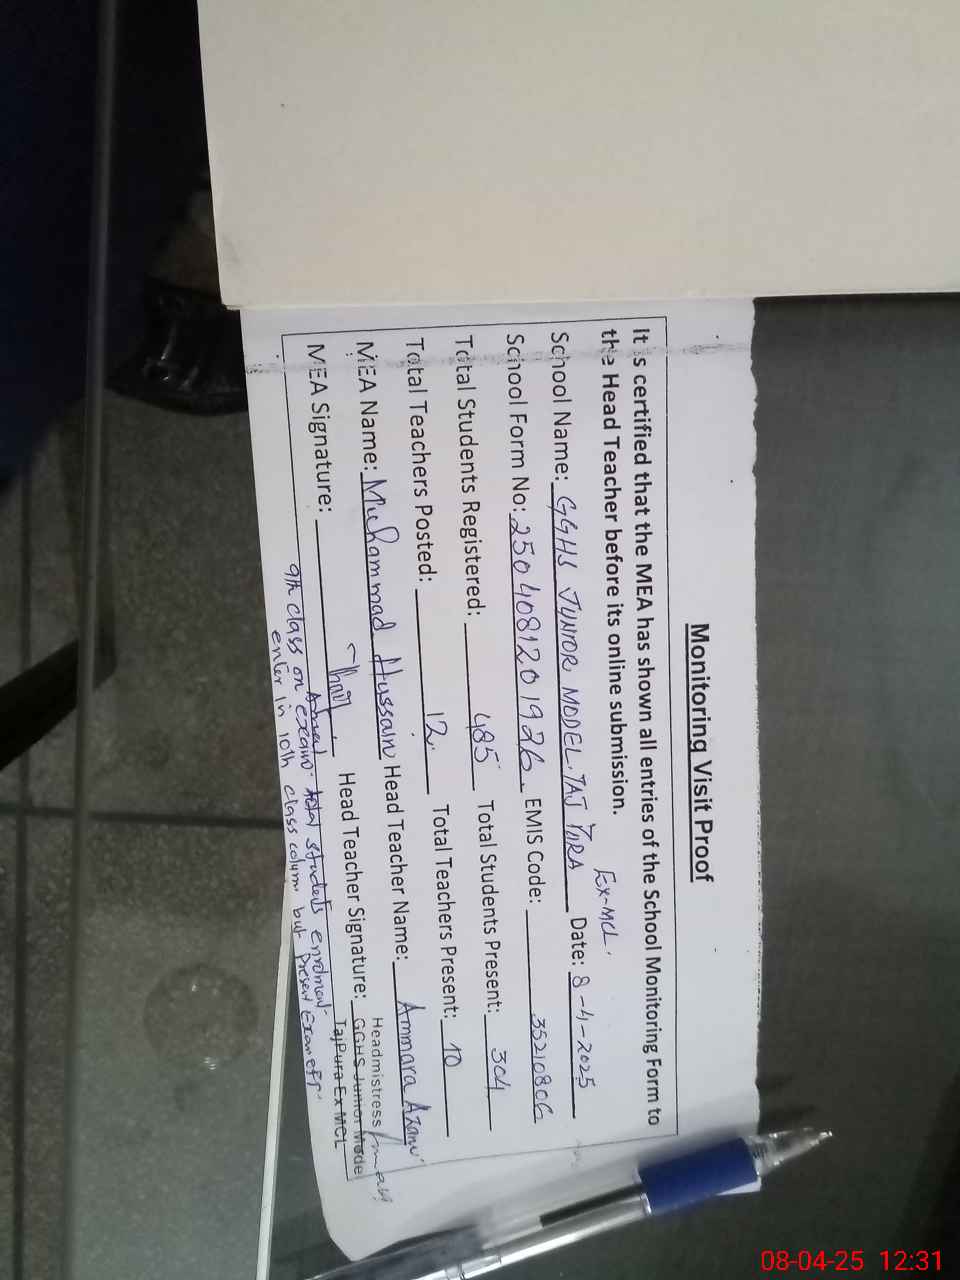 Monitoring Visit Proof
It is certified that the MEA has shown all entries of the School Monitoring Form to
the Head Teacher before its online submission.
Ex-MCL.
School Name: GGHS JUNIOR MODEL, TAJ PURA Date: 8-4-2025
School Form No: 250408120 1926 EMIS Code: 35210806
Total Students Registered: 485 Total Students Present: 304
Total Teachers Posted: 12 Total Teachers Present: 10
MEA Name: Muhammad Hussain Head Teacher Name: Ammara
MEA Signature: Head Teacher Signature:
Headmistress
GGHS Junior Model
TajPura Ex MCL
9th class on exam total students enrolment
enter in 10th class column but present
08-04-25 12:31